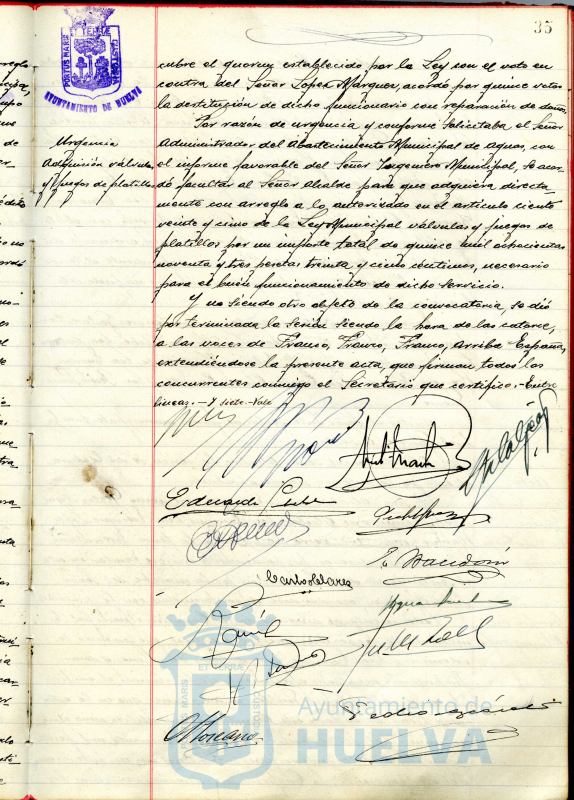 35
PORTUS MARIS ET TERRAE CUSTODIA
AYUNTAMIENTO DE HUELVA
cubre el quorum establecido por la Ley con el voto en
contra del Señor Lopez Marquez, acordó por quince votos
la destitución de dicho funcionario con reparación de daños.
Urgencia
Adquisición válvulas
y juegos de platillos
Por razón de urgencia y conforme solicitaba el Señor
Administrador del Abastecimiento Municipal de aguas, con
el informe favorable del Señor Ingeniero Municipal, se acor-
dó facultar al Señor Alcalde para que adquiera directa-
mente con arreglo a lo autorizado en el artículo ciento
veinte y cinco de la Ley Municipal válvulas y juegos de
platillos por un importe total de quince mil ochocientas
noventa y tres pesetas treinta y cinco céntimos, necesario
para el buen funcionamiento de dicho servicio.
Y no siendo otro objeto de la convocatoria, se dió
por terminada la Sesión siendo la hora de las catorce,
a las voces de Franco, Franco, Franco, Arriba España,
extendiéndose la presente acta, que firman todos los
concurrentes conmigo el Secretario que certifico.- Entre
lineas.- y siete- Vale
Eduardo
Carlos
Pedro
Ayuntamiento de
HUELVA